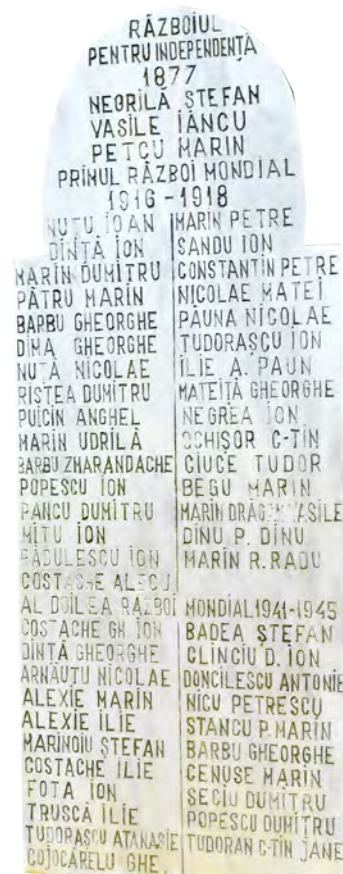 RĂZBOIUL
PENTRU INDEPENDENȚĂ
1877
NEGRILĂ ȘTEFAN
VASILE IANCU
PETCU MARIN
PRIMUL RĂZBOI MONDIAL
1916-1918
NUȚU IOAN
DINȚĂ ION
MARIN DUMITRU
PĂTRU MARIN
BARBU GHEORGHE
DIMA GHEORGHE
NUȚĂ NICOLAE
RISTEA DUMITRU
PUICIN ANGHEL
MARIN UDRILĂ
BARBU ZMARANDACHE
POPESCU ION
PANCU DUMITRU
MITU ION
RĂDULESCU ION
COSTACHE ALECU
MARIN PETRE
SANDU ION
CONSTANTIN PETRE
NICOLAE MATEI
PĂUNA NICOLAE
TUDORAȘCU ION
ILIE A. PAUN
MATEIȚĂ GHEORGHE
NEGREA ION
OCHIȘOR C-TIN
CIUCE TUDOR
BEGU MARIN
MARIN VASILE
DINU P. DINU
MARIN R. RADU
AL DOILEA RĂZBOI MONDIAL 1941-1945
COSTACHE GH. ION
DINȚĂ GHEORGHE
ARNĂUȚU NICOLAE
ALEXIE MARIN
ALEXIE ILIE
MARINOIU ȘTEFAN
COSTACHE ILIE
FOTA ION
TRUSCĂ ILIE
TUDORAȘCU ATANASIE
COJOCĂRELU GHE.
BADEA ȘTEFAN
CLINCIU D. ION
DONCILESCU ANTONIE
NICU PETRESCU
STANCU P. MARIN
BARBU GHEORGHE
CENUSE MARIN
SECIU DUMITRU
POPESCU DUMITRU
TUDORAN C-TIN JANE